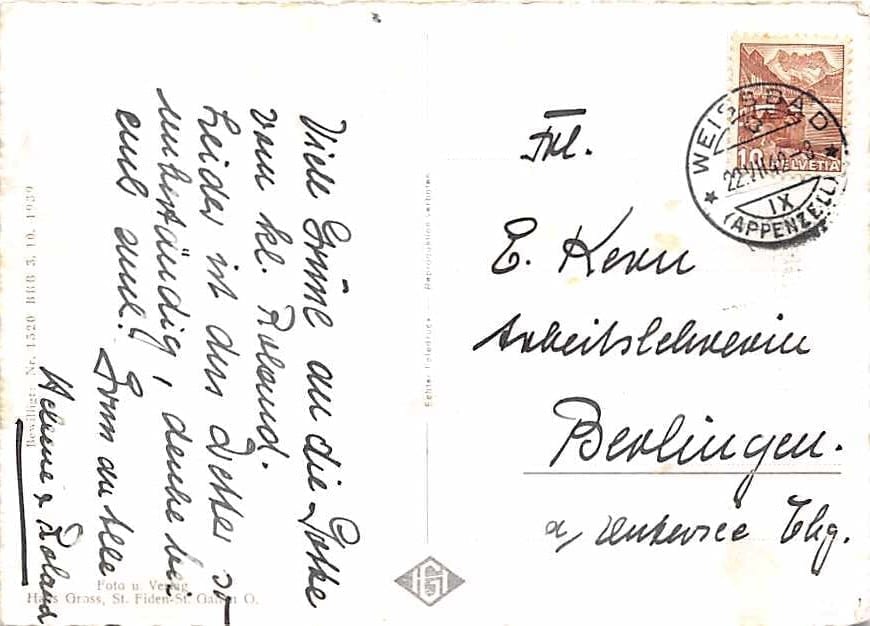 Viele Grüße an die Gotte
vom kl. Roland.
Leider ist das Wetter so
unbeständig, denke bei
euch auch! Gruss an Alle
Helene & Roland
Bewilligt: Nr. 1520 BRB 3. 10. 1939
Foto u. Verlag
Hans Gross, St. Fiden-St. Gallen O.
Echter Fotodruck — Reproduktion verboten
HG
10 HELVETIA
WEISSBAD
22.VII.42-8
IX
(APPENZELL)
Frl.
E. Kern
Arbeitslehrerin
Berlingen.
a/ Untersee Thg.